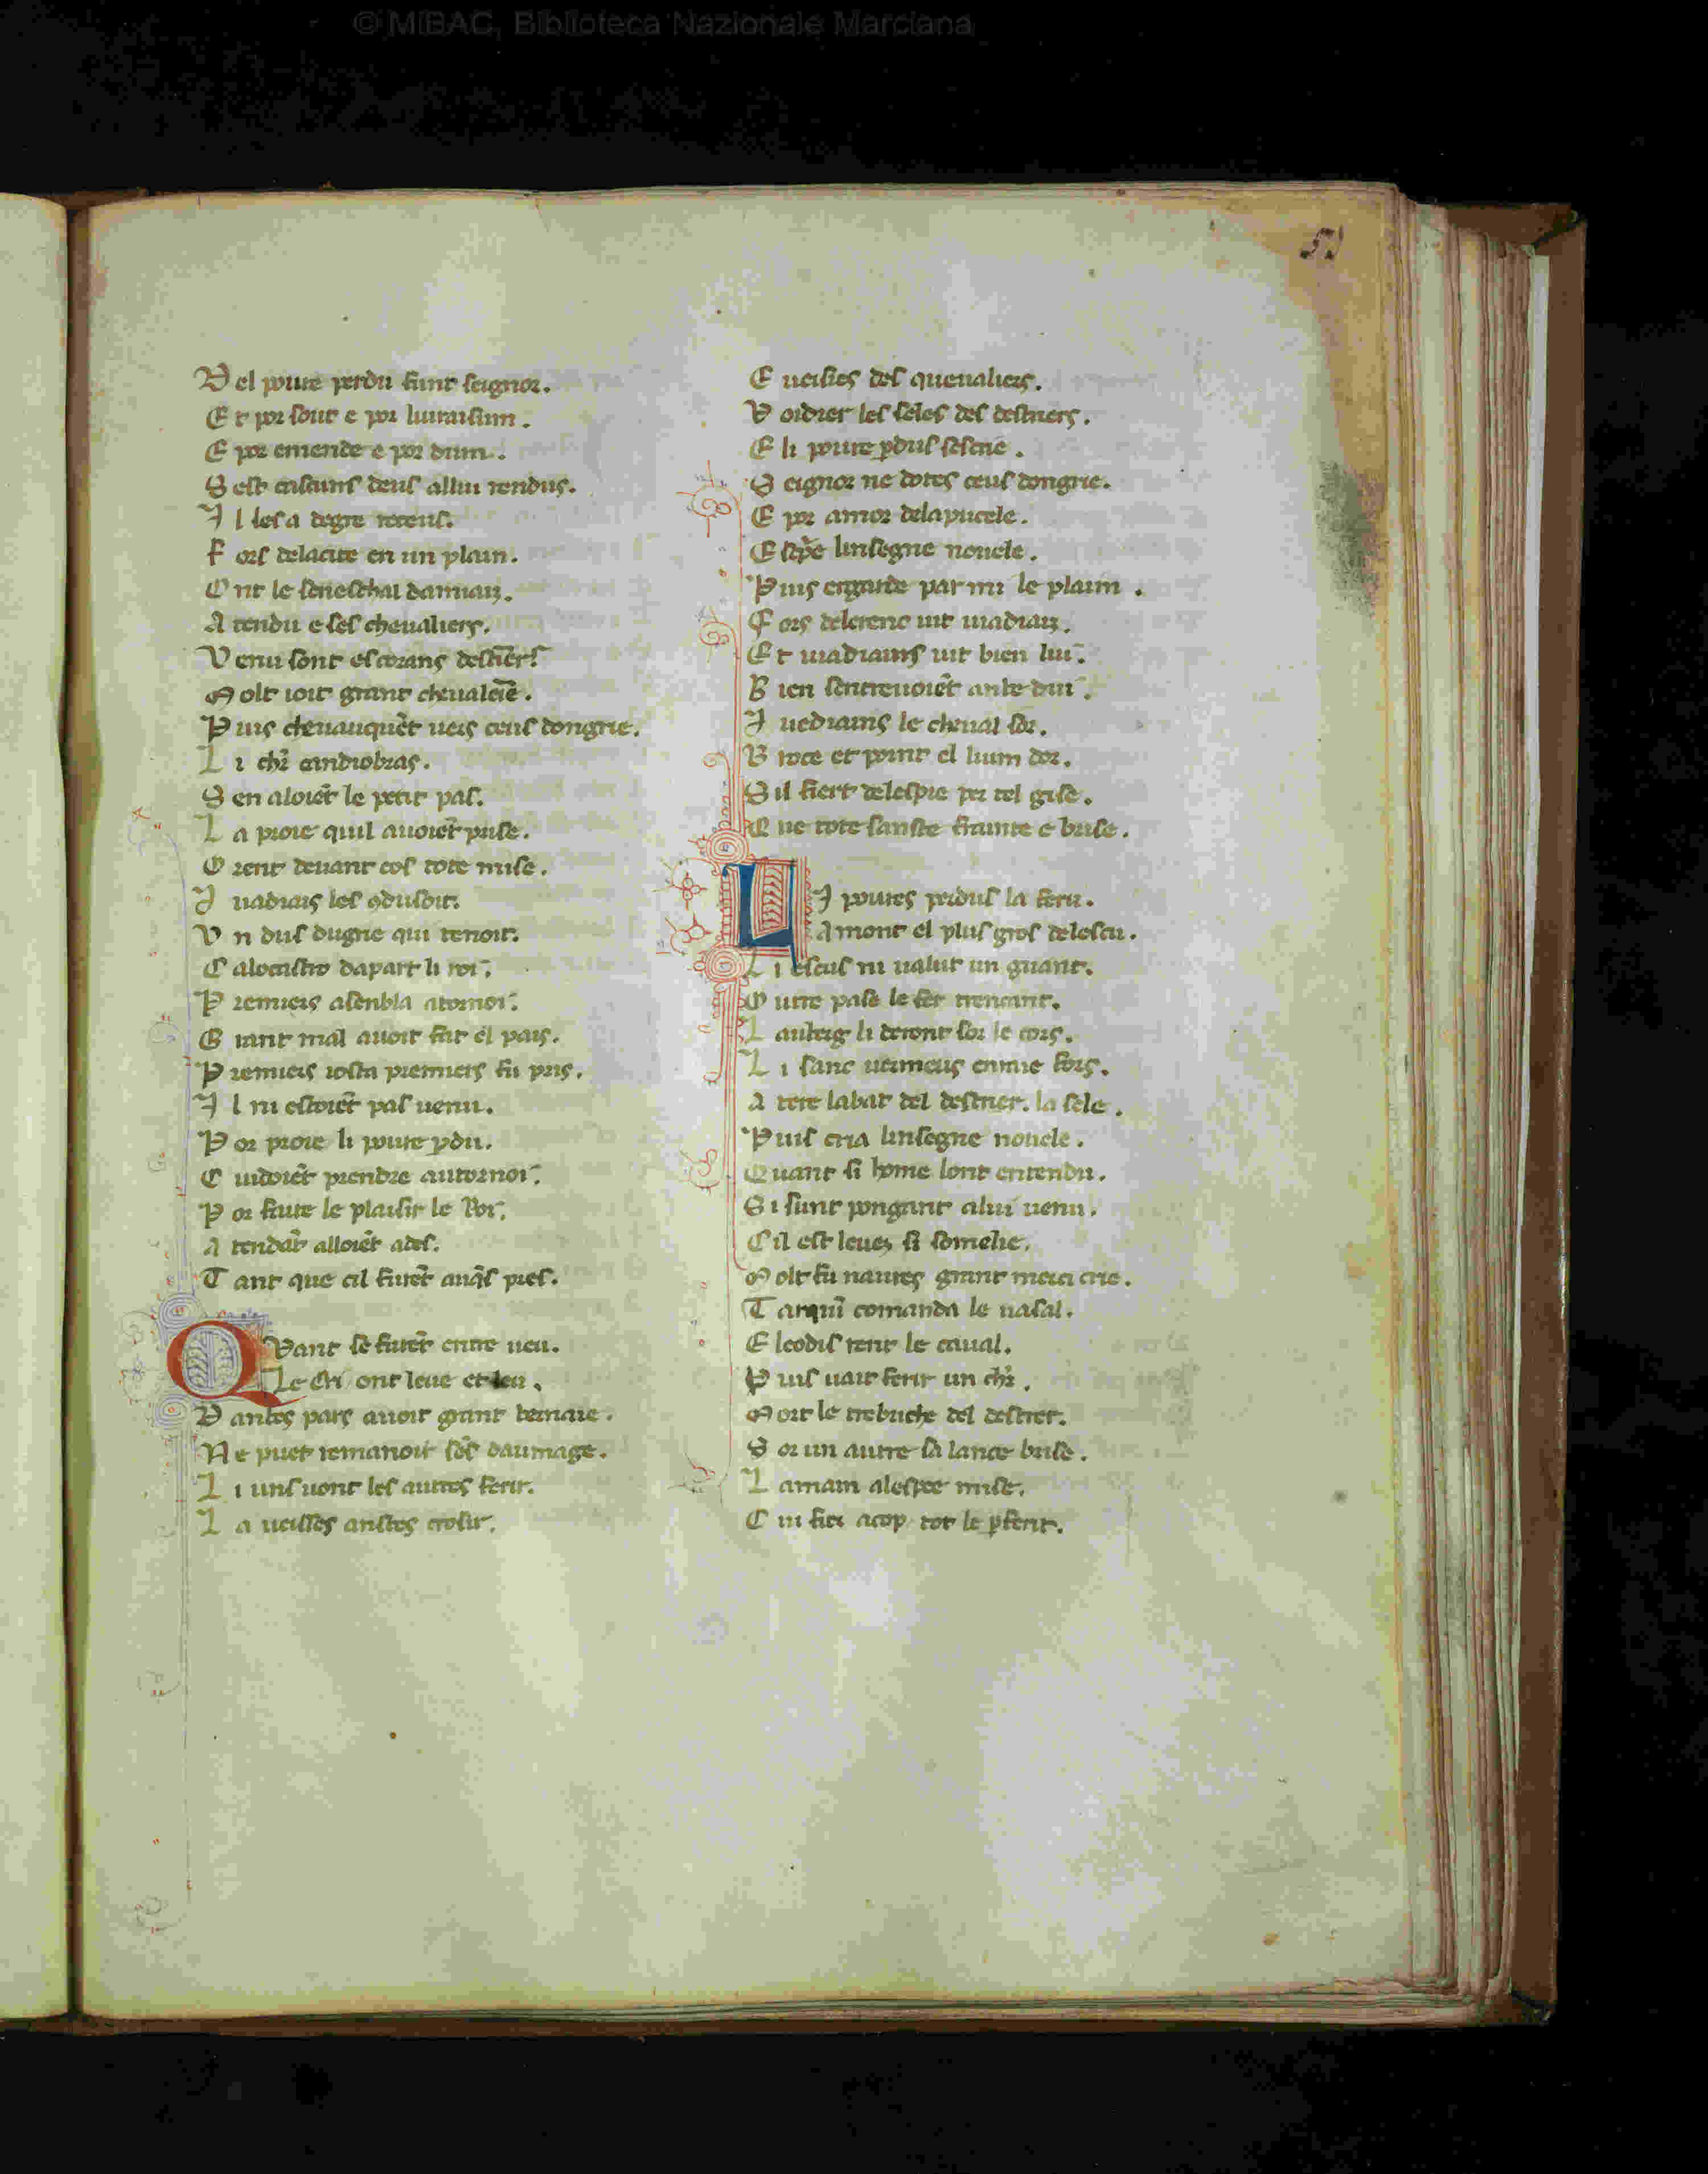 © MiBAC, Biblioteca Nazionale Marciana
51
Del poure perdu funt seignor.
Et por sout e por liuraisun.
E por emende e por dum.
Sest cascuns deus allui rendus.
Il les a degre receus.
Fors delacite en un plain.
Ont le seneschal damiaz.
Atendu e ses cheualiers.
Venu sont es corans destriers
Molt ioit grant cheualcie.
Puis cheuauquēt uers ceus dongrie.
Li chr̄ candiobras.
Sen aloiēt le petit pas.
La proie quil auoiēt prise.
Orent deuant eos tote mise.
Iuadiais les ꝯdusoit.
Vn dus dugrie qui tenoit.
Calocastro dapart li roi.
Premiers asenbla atornoi.
Grant mal auoit fait el pais.
Premiers iosta premiers fu pris.
Il ni estoiēt pas uenu.
Por proie li poure ꝑdu.
Cuidoiēt prendre autornoi.
Por faire le plaisir le Roi.
Atendāt alloiēt ades.
Tant que cil furēt auqs pres.
Qvant se furēt entre ueu.
Le cri ont leue et leu.
Danbes pars auoit grant bernaie.
Ne puet remanoir sēs daumage.
Li uns uont les autres ferir.
La ueisses anstes croisir.
E ueises des queualiers.
Voidier les seles des destriers.
E li poure ꝑdus sescrie.
Seignor ne dotes ceus dongrie.
E por amor delapucele.
Escrie linsegne nouele.
Puis ergarde par mi le plaim.
Fors delerenc uit iuadiaz.
Et iuadiains uit bien lui.
Bien sentreuoiēt anbe dui.
Iuediains le cheual sor.
Broce et point el lium dor.
Sil fiert delespie per tel gise.
Que tote sanste frainte e brise.
LI poures perdus la feru.
Amont el plus gros delescu.
Li escus ni ualut un guant.
Outre pase le fer trencant.
Lauberg li deront sor le cors.
Li sanc uermeus enmie fors.
A tere labat del destrier. la sele.
Puis cria linsegne nouele.
Quant si home lont entendu.
Si sunt pongant alui uenu.
Cil est leuez si somelie.
Molt fu naures grant merci crie.
Tarquī comanda le uasal.
E leodis tent le caual.
Puis uait ferir un chr̄.
Mort le trebuche del destrer.
Sor un autre sa lance brise.
La main alespee mise.
Cui fiert acop tot le ꝑferit.